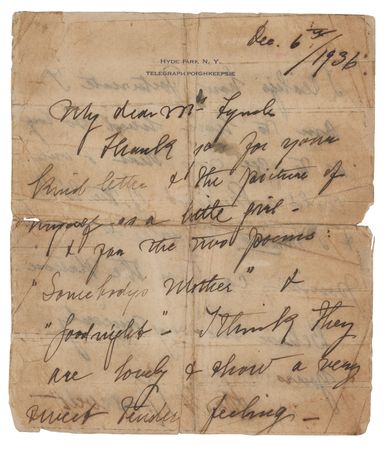 Dec. 6th/1936
HYDE PARK, N. Y.
TELEGRAPH POUGHKEEPSIE
My dear Mr Lynch
Thank you for your
kind letter & the picture of
myself, as a little girl -
& for the two poems:
"Somebody's Mother" &
"Goodnight" - I think they
are lovely & show a very
sweet tender feeling -